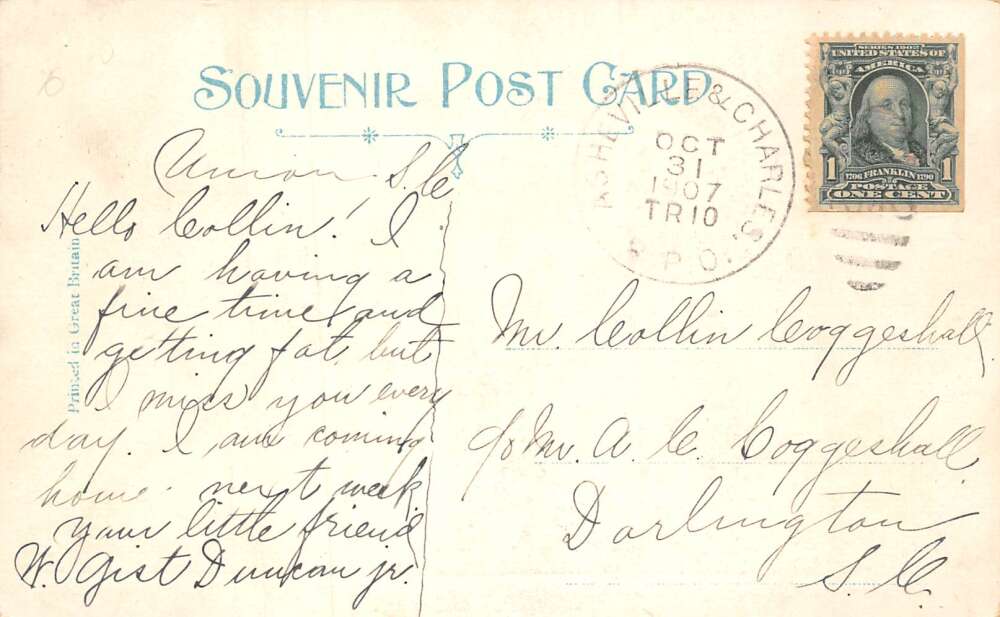 SOUVENIR POST CARD
ASHEVILLE & CHARLES.
OCT
31
1907
TR10
R.P.O.
SERIES 1902
UNITED STATES OF
AMERICA
1
1
1706 FRANKLIN 1790
POSTAGE
ONE CENT
Printed in Great Britain
Union S.C.
Hello Collin! I
am having a
fine time and
getting fat, but
I miss you every
day. I am coming
home next week
your little friend
W. Gist Duncan jr.
Mr. Collin Coggeshall
c/o Mr. A. C. Coggeshall
Darlington
S.C.